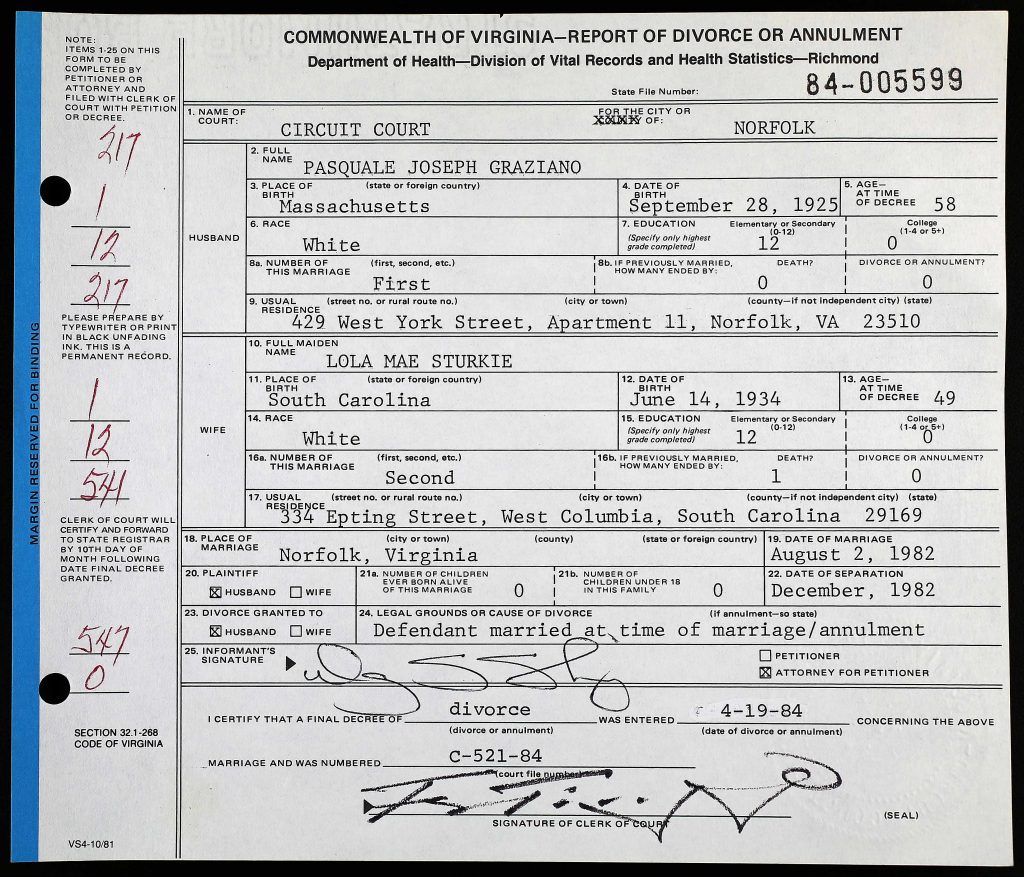 COMMONWEALTH OF VIRGINIA—REPORT OF DIVORCE OR ANNULMENT
Department of Health—Division of Vital Records and Health Statistics—Richmond
State File Number: 84-005599
NOTE:
ITEMS 1-25 ON THIS
FORM TO BE
COMPLETED BY
PETITIONER OR
ATTORNEY AND
FILED WITH CLERK OF
COURT WITH PETITION
OR DECREE.
217
1
12
217
PLEASE PREPARE BY
TYPEWRITER OR PRINT
IN BLACK UNFADING
INK. THIS IS A
PERMANENT RECORD.
1
12
541
CLERK OF COURT WILL
CERTIFY AND FORWARD
TO STATE REGISTRAR
BY 10TH DAY OF
MONTH FOLLOWING
DATE FINAL DECREE
GRANTED.
547
0
SECTION 32.1-268
CODE OF VIRGINIA
VS4-10/81
MARGIN RESERVED FOR BINDING
1. NAME OF COURT: CIRCUIT COURT FOR THE CITY OR XXXX OF: NORFOLK
HUSBAND
2. FULL NAME PASQUALE JOSEPH GRAZIANO
3. PLACE OF BIRTH (state or foreign country) Massachusetts
4. DATE OF BIRTH September 28, 1925
5. AGE— AT TIME OF DECREE 58
6. RACE White
7. EDUCATION (Specify only highest grade completed) Elementary or Secondary (0-12) 12 College (1-4 or 5+) 0
8a. NUMBER OF THIS MARRIAGE (first, second, etc.) First
8b. IF PREVIOUSLY MARRIED, HOW MANY ENDED BY: DEATH? 0 DIVORCE OR ANNULMENT? 0
9. USUAL RESIDENCE (street no. or rural route no.) (city or town) (county—if not independent city) (state)
429 West York Street, Apartment 11, Norfolk, VA 23510
WIFE
10. FULL MAIDEN NAME LOLA MAE STURKIE
11. PLACE OF BIRTH (state or foreign country) South Carolina
12. DATE OF BIRTH June 14, 1934
13. AGE— AT TIME OF DECREE 49
14. RACE White
15. EDUCATION (Specify only highest grade completed) Elementary or Secondary (0-12) 12 College (1-4 or 5+) 0
16a. NUMBER OF THIS MARRIAGE (first, second, etc.) Second
16b. IF PREVIOUSLY MARRIED, HOW MANY ENDED BY: DEATH? 1 DIVORCE OR ANNULMENT? 0
17. USUAL RESIDENCE (street no. or rural route no.) (city or town) (county—if not independent city) (state)
334 Epting Street, West Columbia, South Carolina 29169
18. PLACE OF MARRIAGE (city or town) (county) (state or foreign country) Norfolk, Virginia
19. DATE OF MARRIAGE August 2, 1982
20. PLAINTIFF X HUSBAND WIFE
21a. NUMBER OF CHILDREN EVER BORN ALIVE OF THIS MARRIAGE 0
21b. NUMBER OF CHILDREN UNDER 18 IN THIS FAMILY 0
22. DATE OF SEPARATION December, 1982
23. DIVORCE GRANTED TO X HUSBAND WIFE
24. LEGAL GROUNDS OR CAUSE OF DIVORCE (if annulment—so state)
Defendant married at time of marriage/annulment
25. INFORMANT'S SIGNATURE
PETITIONER
X ATTORNEY FOR PETITIONER
I CERTIFY THAT A FINAL DECREE OF divorce WAS ENTERED 4-19-84 CONCERNING THE ABOVE
(divorce or annulment) (date of divorce or annulment)
MARRIAGE AND WAS NUMBERED C-521-84
(court file number)
SIGNATURE OF CLERK OF COURT
(SEAL)